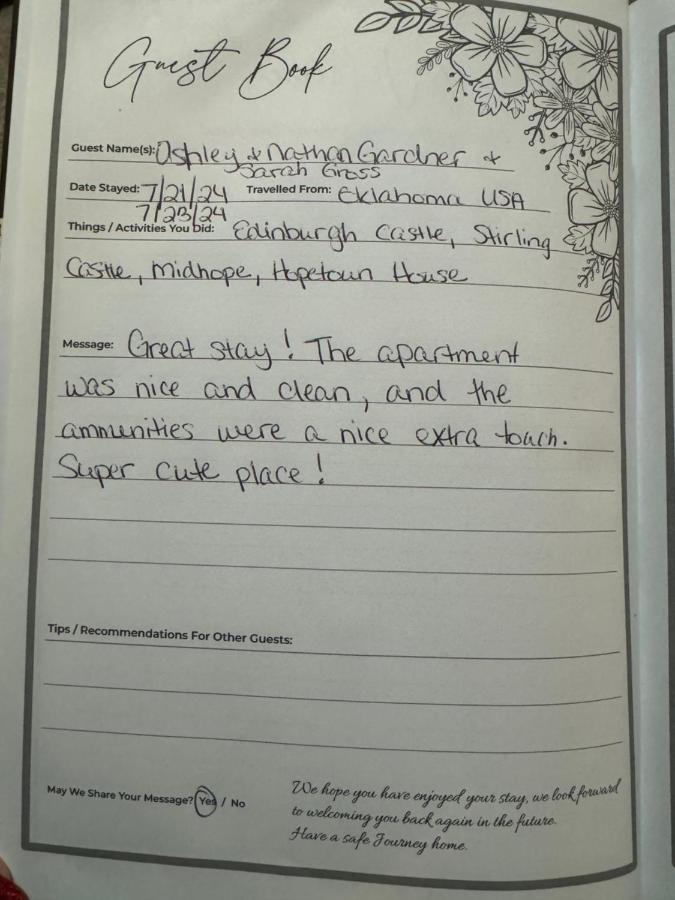 Guest Book
Guest Name(s): Ashley & Nathan Gardner &
Sarah Gross
Date Stayed: 7/21/24 Travelled From: Oklahoma USA
7/23/24
Things / Activities You Did: Edinburgh Castle, Stirling
Castle, Midhope, Hopetoun House
Message: Great stay! The apartment
was nice and clean, and the
ammenities were a nice extra touch.
Super cute place!
Tips / Recommendations For Other Guests:
May We Share Your Message? Yes / No
We hope you have enjoyed your stay, we look forward
to welcoming you back again in the future.
Have a safe Journey home.